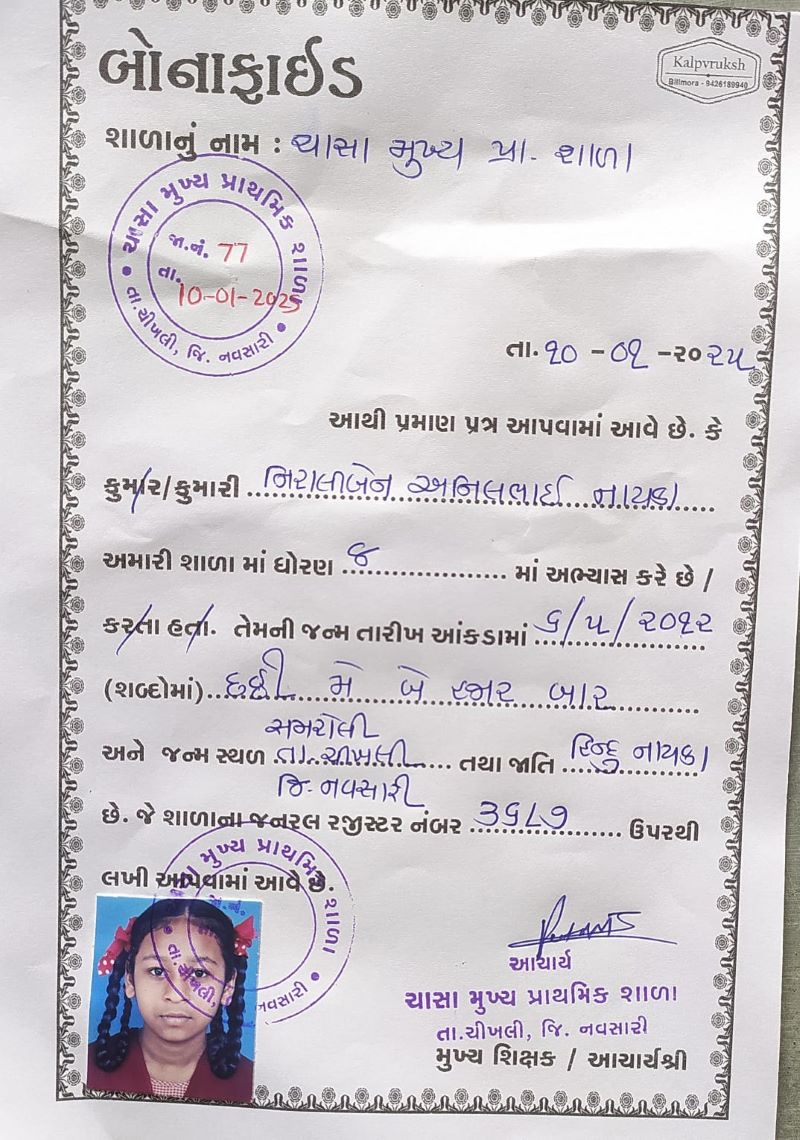 બોનાફાઈડ
Kalpvruksh
Billmora - 9426189940
શાળાનું નામ : ચાસા મુખ્ય પ્રા. શાળા
ચાસા મુખ્ય પ્રાથમિક શાળા
જા.નં. 77
તા. 10-01-2025
તા.ચીખલી, જિ. નવસારી
તા. ૧૦ - ૦૧ - ૨૦૨૫
આથી પ્રમાણ પત્ર આપવામાં આવે છે. કે
કુમાર/કુમારી નિરાલીબેન અનિલભાઈ નાયકા
અમારી શાળા માં ધોરણ ૭ માં અભ્યાસ કરે છે /
કરતા હતા. તેમની જન્મ તારીખ આંકડામાં ૬/૫/૨૦૧૨
(શબ્દોમાં) છઠ્ઠી મે બે હજાર બાર
સમરોલી
અને જન્મ સ્થળ તા. ચીખલી તથા જાતિ હિન્દુ નાયકા
જિ. નવસારી
છે. જે શાળાના જનરલ રજીસ્ટર નંબર ૩૬૮૭ ઉપરથી
લખી આપવામાં આવે છે.
મુખ્ય પ્રાથમિક શાળા
જા.નં.
તા.ચીખલી, નવસારી
આચાર્ય
ચાસા મુખ્ય પ્રાથમિક શાળા
તા.ચીખલી, જિ. નવસારી
મુખ્ય શિક્ષક / આચાર્યશ્રી